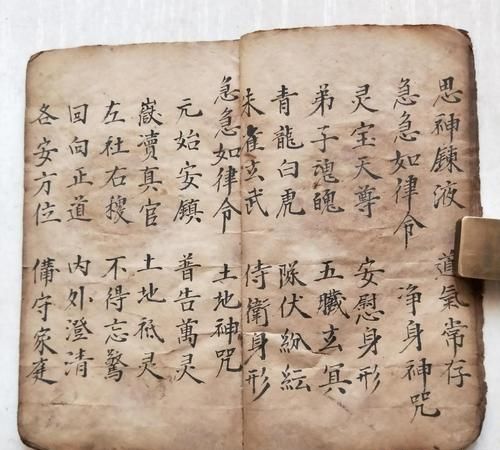 思神鍊液 道氣常存
急急如律令 净身神咒
灵宝天尊 安慰身形
弟子魂魄 五臓玄冥
青龍白虎 隊伏紛紜
朱雀玄武 侍衛身形
急急如律令 土地神咒
元始安鎮 普告萬灵
嶽瀆真官 土地祗灵
左社右稷 不得忘驚
回向正道 内外澄清
各安方位 備守家庭